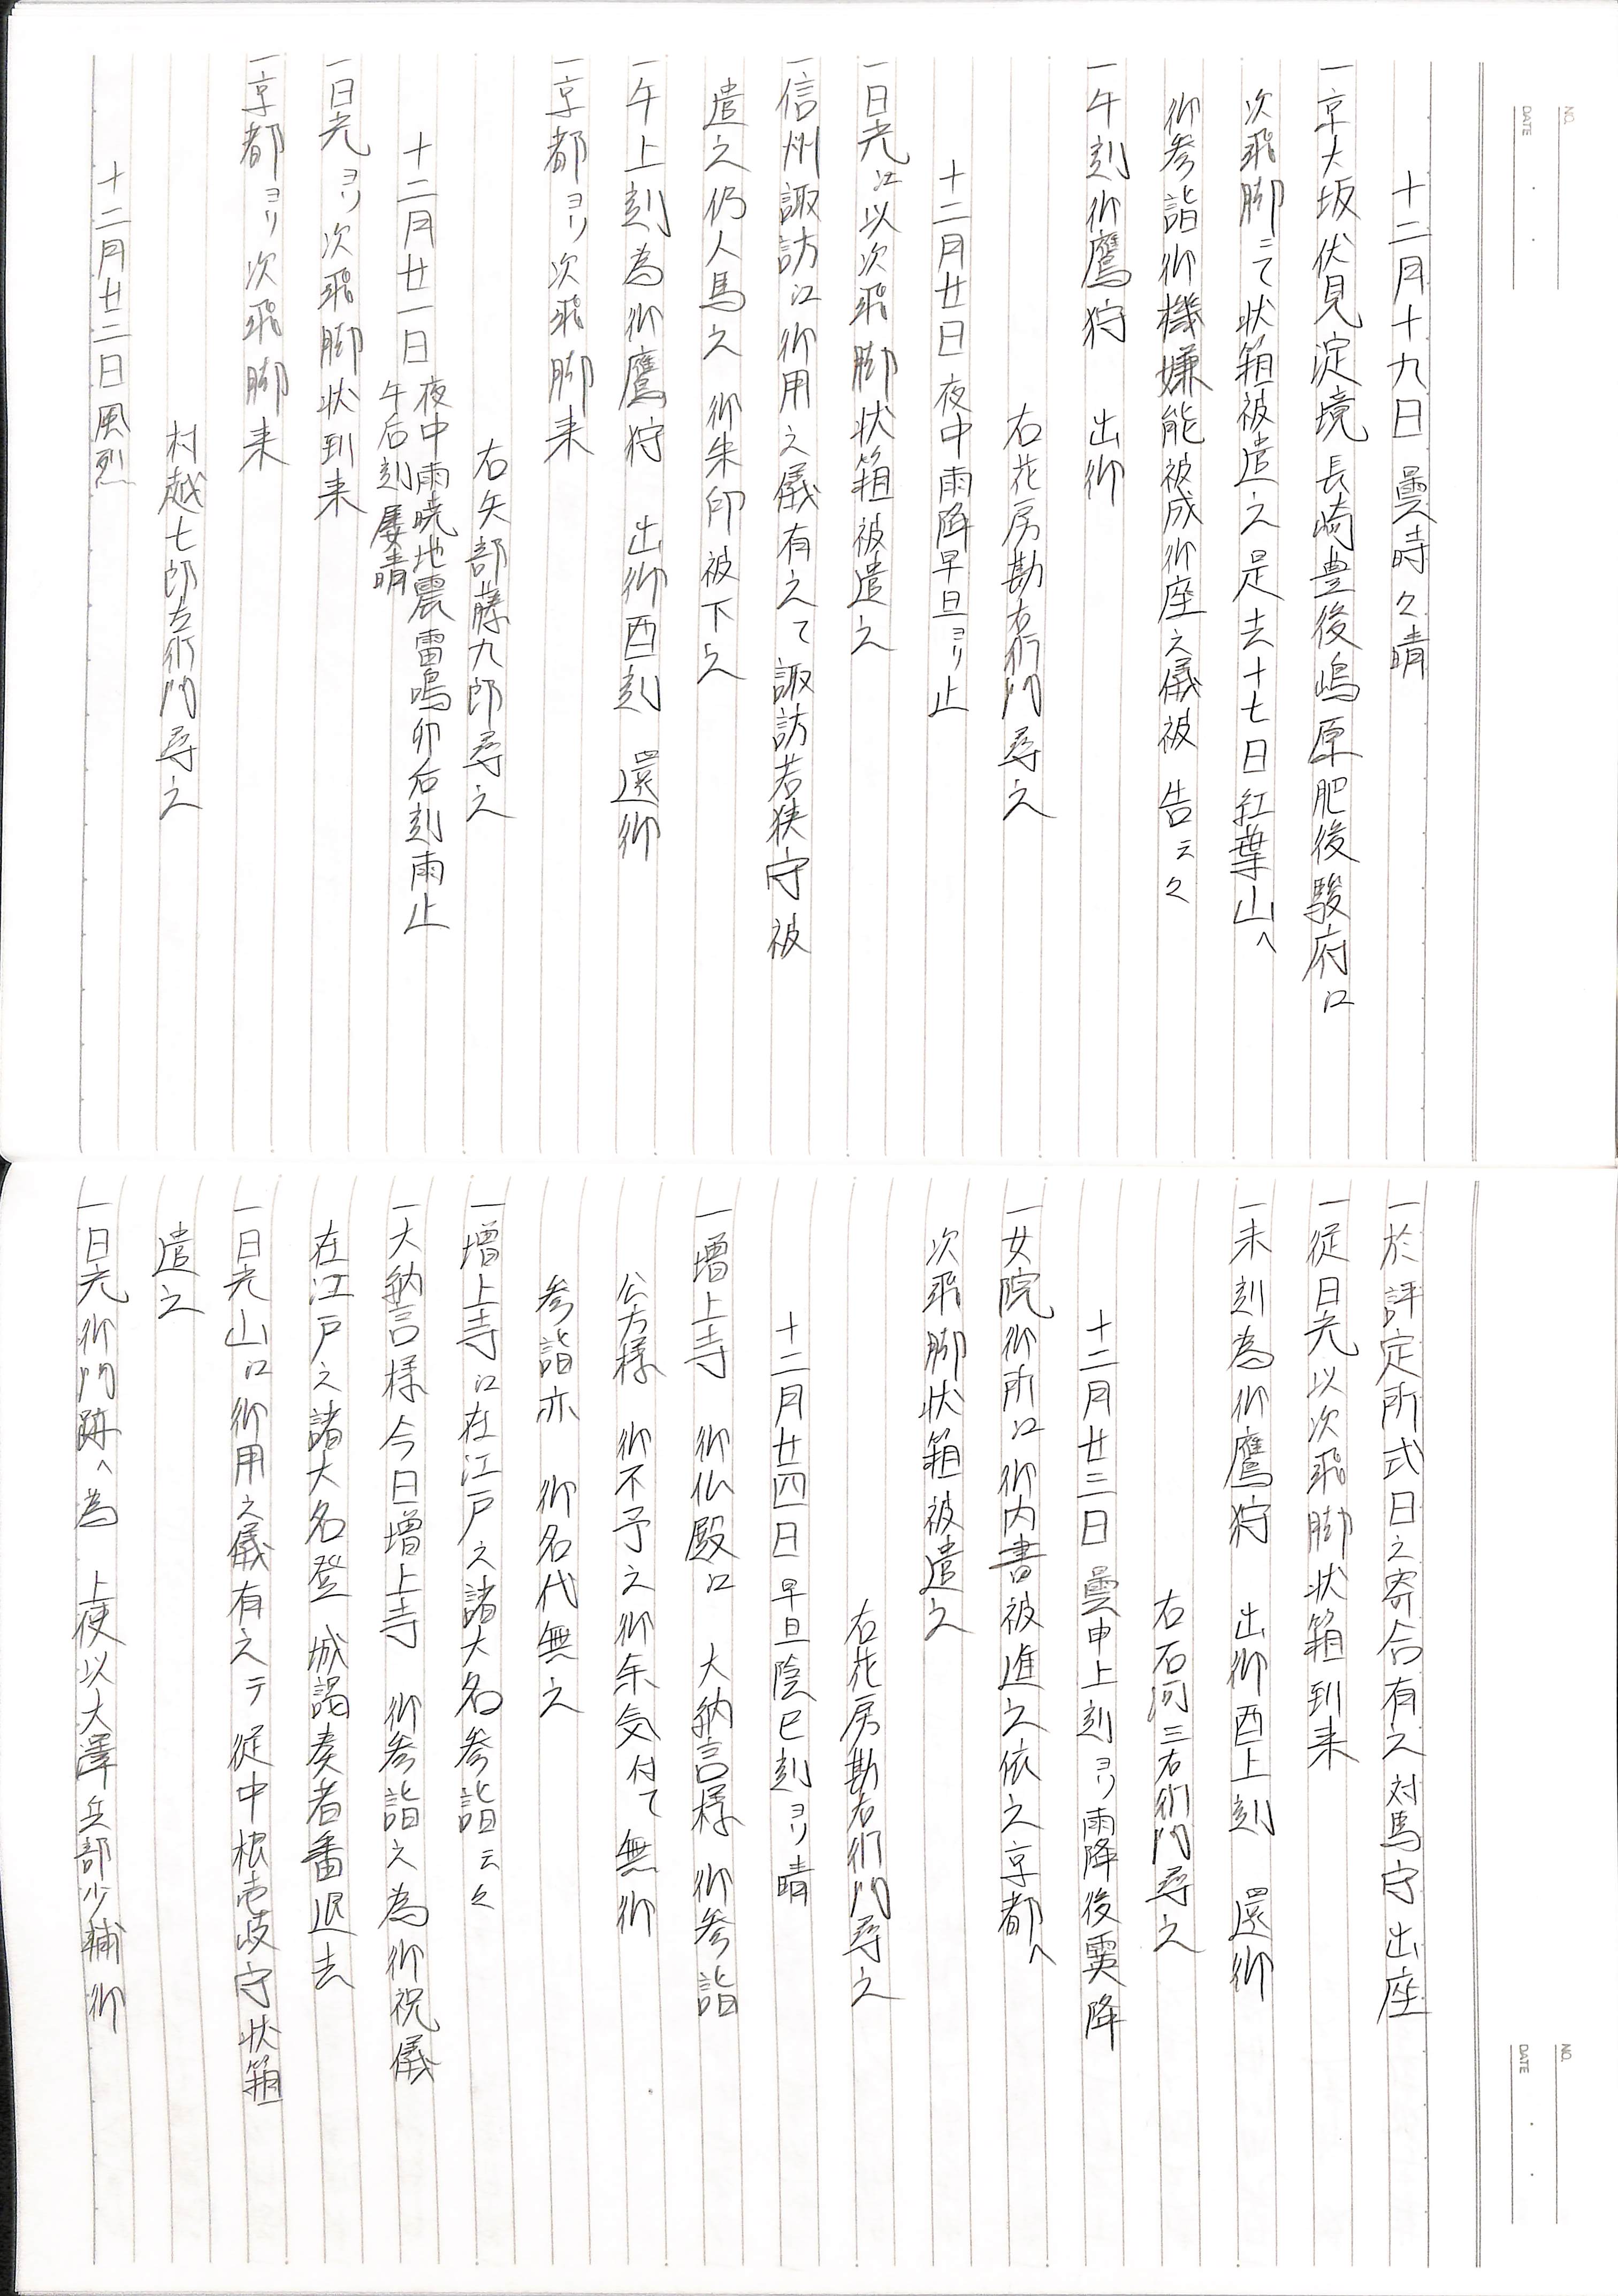 NO.
DATE
十二月十九日 曇時々晴
一京大坂伏見淀境長崎豊後嶋原肥後駿府江
次飛脚ニて状箱被遣之是去十七日紅葉山へ
御参詣御機嫌能被成御座之儀被 告云々
一午刻御鷹狩 出御
右花房勘右衛門尋之
十二月廿日 夜中雨降早旦ヨリ止
一日光江以次飛脚状箱被遣之
一信州諏訪江御用之儀有之て諏訪若狭守被
遣之仍人馬之 御朱印被下之
一午上刻為御鷹狩 出御酉刻 還御
一京都ヨリ次飛脚来
右矢部藤九郎尋之
十二月廿一日 夜中雨暁地震雷鳴卯后刻雨止
午后刻屡晴
一日光ヨリ次飛脚状到来
一京都ヨリ次飛脚来
村越七郎左衛門尋之
十二月廿二日 風烈
NO.
DATE
一於評定所式日之寄合有之対馬守出座
一従日光以次飛脚状箱到来
一未刻為御鷹狩 出御酉上刻 還御
右石河三右衛門尋之
十二月廿三日 曇申上刻ヨリ雨降後霙降
一女院御所江御内書被進之依之京都へ
次飛脚状箱被遣之
右花房勘右衛門尋之
十二月廿四日 早旦陰巳刻ヨリ晴
一増上寺 御仏殿江 大納言様 御参詣
公方様 御不予之御余気付て無御
参詣亦 御名代無之
一増上寺江在江戸之諸大名参詣云々
一大納言様今日増上寺 御参詣之為御祝儀
在江戸之諸大名登 城謁奏者番退去
一日光山江御用之儀有之テ従中根壱岐守状箱
遣之
一日光御門跡へ為 上使以大澤兵部少輔御